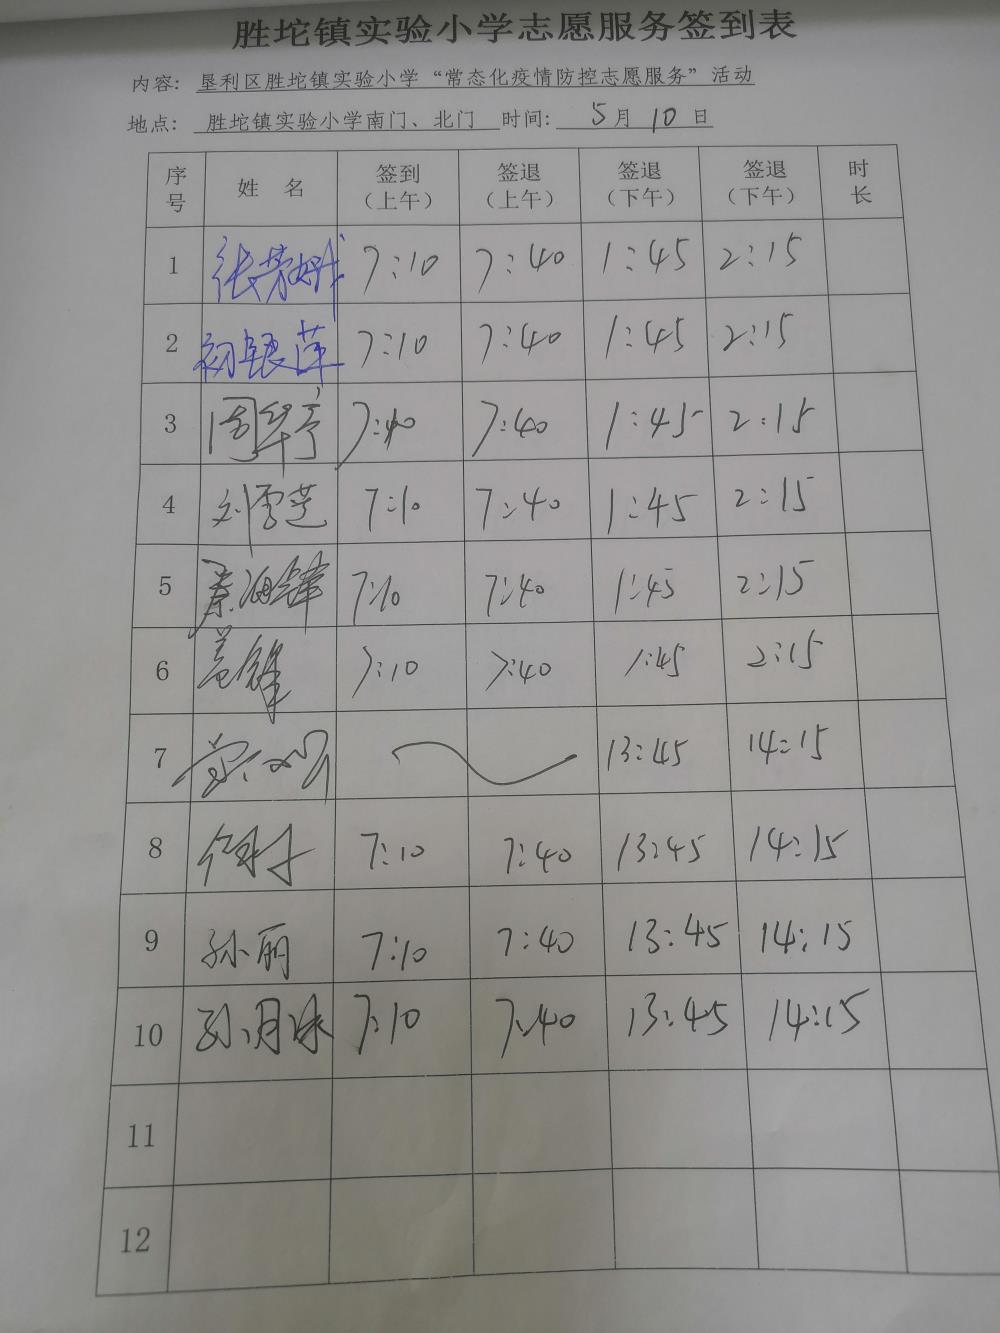 胜坨镇实验小学志愿服务签到表
内容: 垦利区胜坨镇实验小学“常态化疫情防控志愿服务”活动
地点: 胜坨镇实验小学南门、北门 时间: 5月10日
序号 姓 名 签到(上午) 签退(上午) 签退(下午) 签退(下午) 时长
1 7:10 7:40 1:45 2:15
2 初银萍 7:10 7:40 1:45 2:15
3 周华亭 7:40 1:45 2:15
4 刘雪芝 7:10 7:40 1:45 2:15
5 秦海锋 7:10 7:40 1:45 2:15
6 盖锋 7:10 7:40 1:45 2:15
7 13:45 14:15
8 7:10 7:40 13:45 14:15
9 孙丽 7:10 7:40 13:45 14:15
10 孙月 7:10 7:40 13:45 14:15
11
12